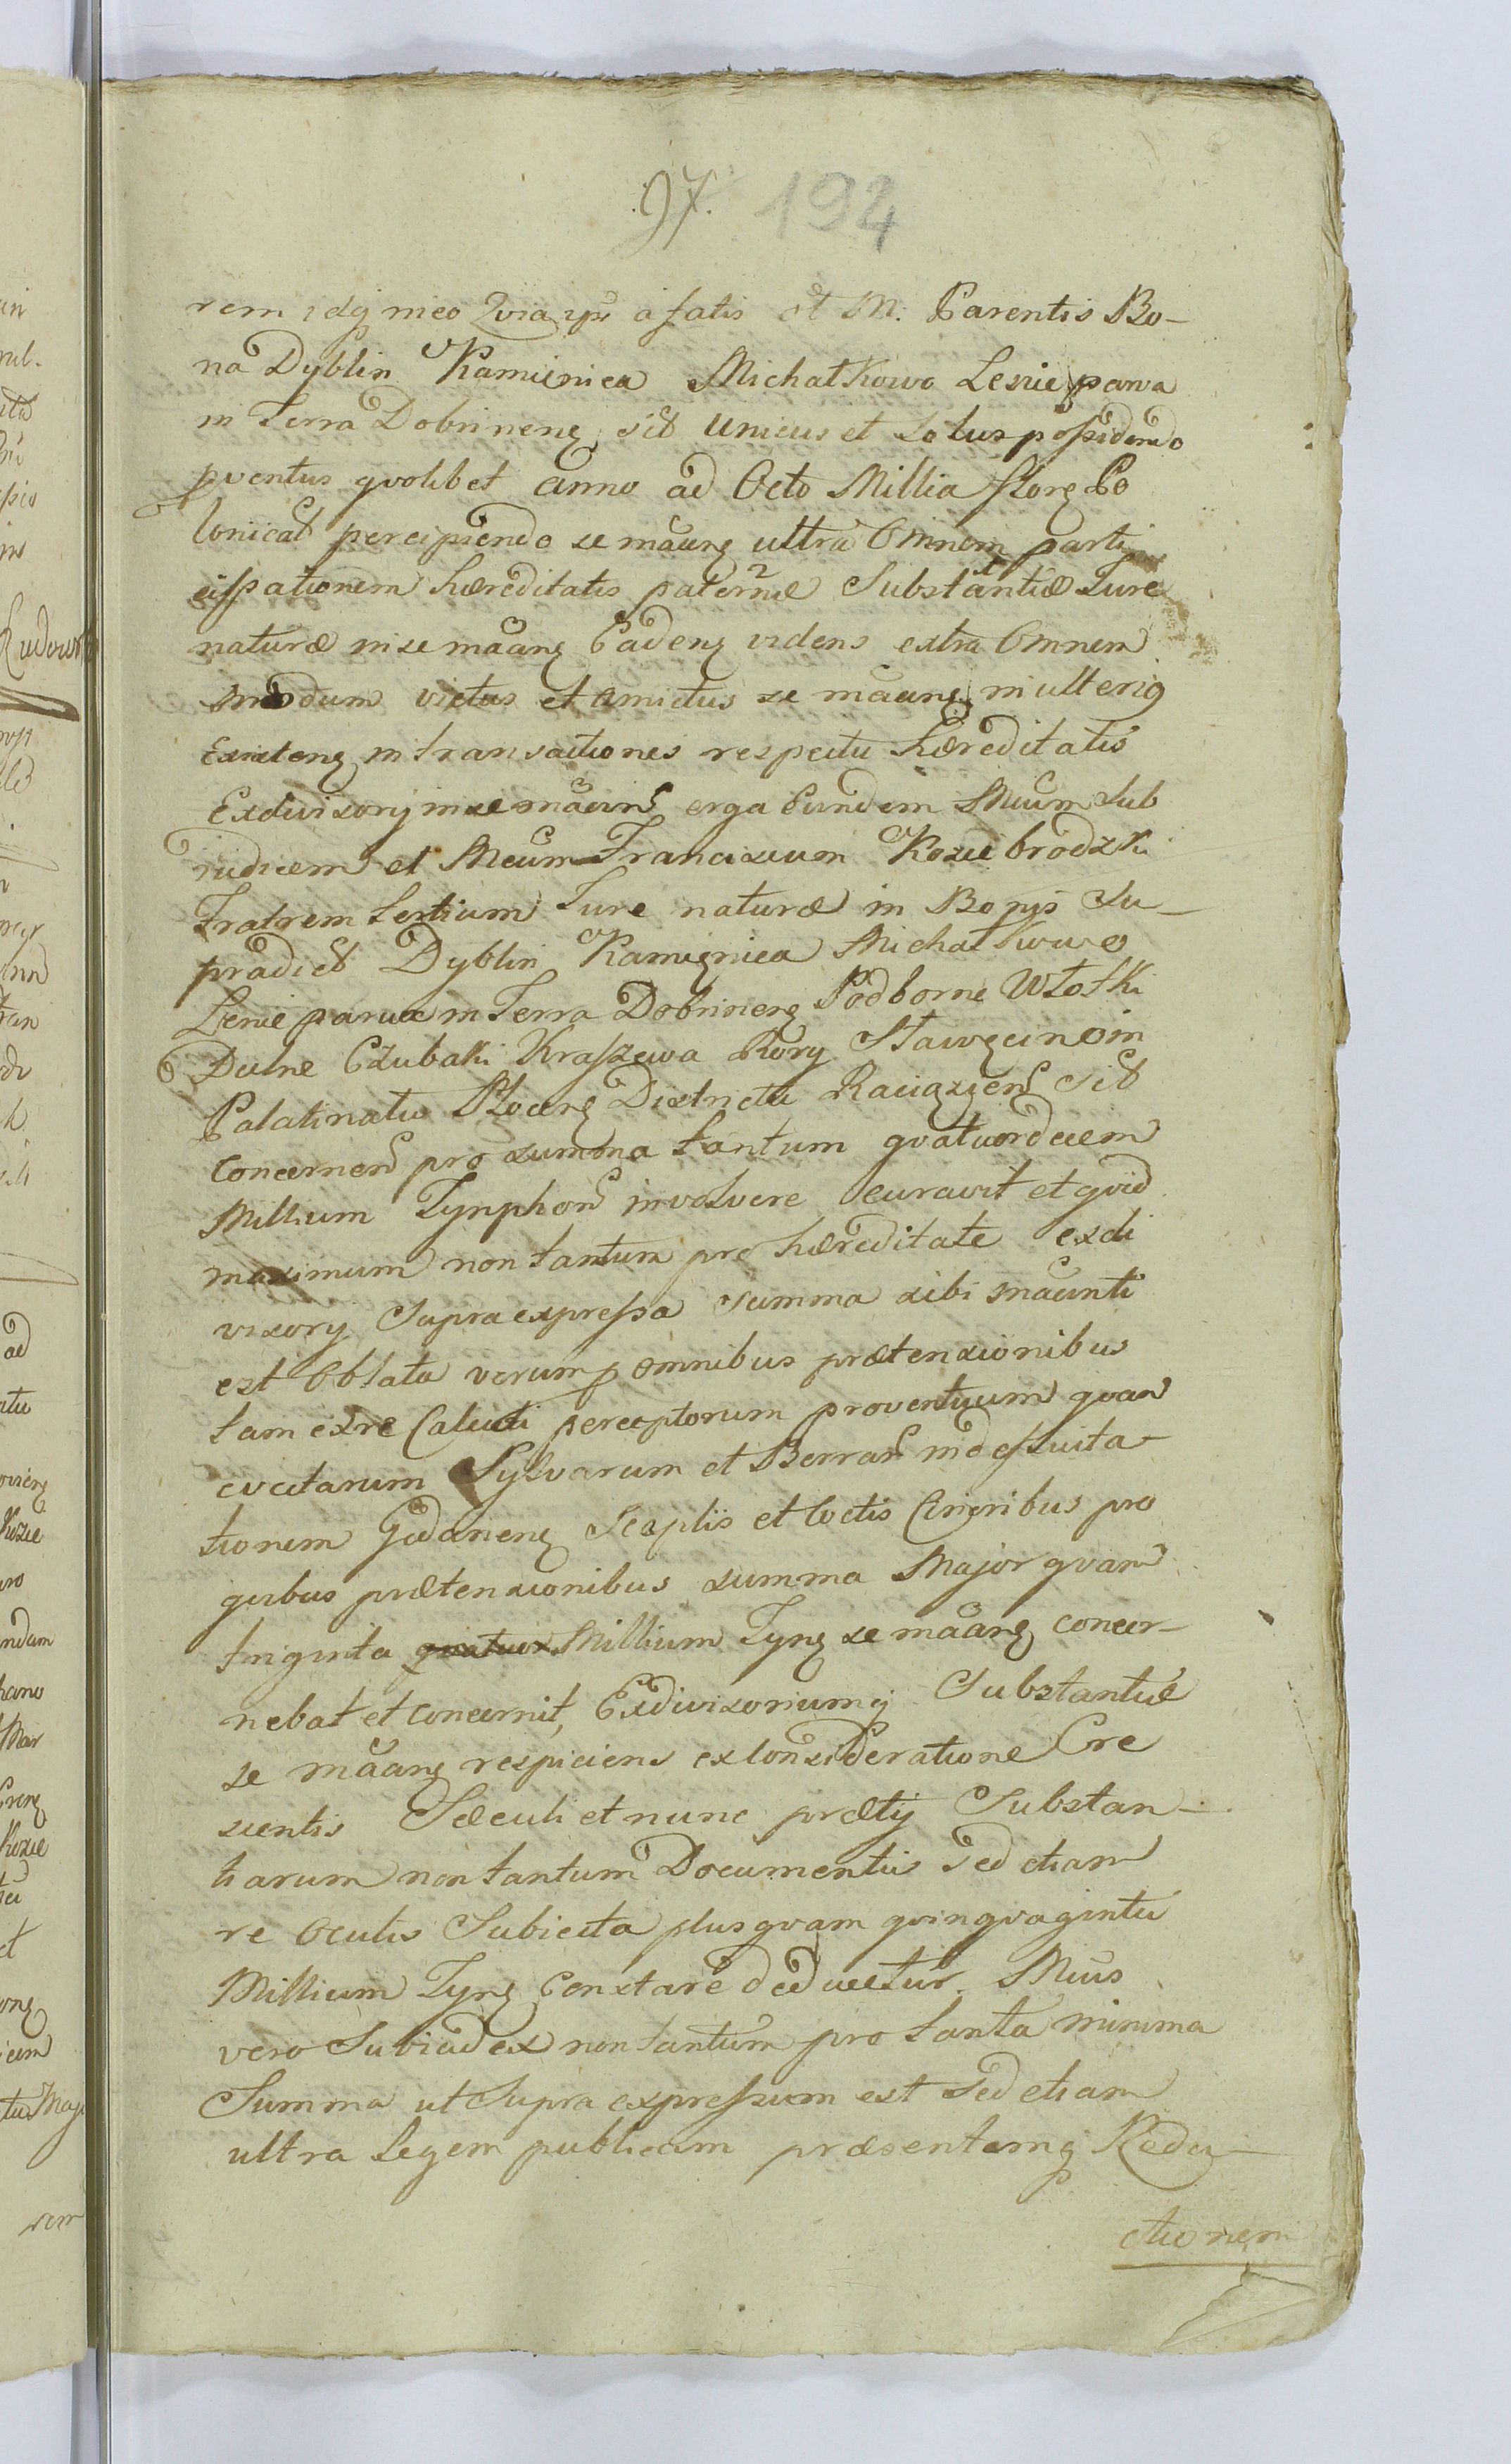 .97. 194
rem idq meo Qvia ipse a fatis et M. Parentis Bo-
na Dyblin Kamienica Michałkowo Lenie parva
in Terra Dobrinens sit unicus et Solus possidendo
pventus qvolibet anno ad Octo Millia Floreg Po
lonicał percipiendo se mãang ultra Omnem parti
cipationem hæreditatis paternæ Substantiæ Jure
naturæ in se mãang Cadeng videns extra Omnem
modum victus et amictus se mãang in ulterig
Exniteng in transactiones respectu hæreditatis
Exdivisorij in se mãan erga Eundem Meum Sub
iudicem et Meum Franciscum Koziebrodzki
Fratrem tertium Jure naturæ in Bonis Su-
pradict Dyblin Kamięnica Michałkowo
Lenie parva in Terra Dobrineng Podborne Włostki
Dulne Czubaki Kraszewa Rory Sławęcino in
Palatinatu Ploceng Districtu Raciązien sit
concernen pro summa tantum qvatuordecim
Millium Tynphon involvere curavit et qvid
maximum non tantum pro hæreditate exdi
visorij Supra expressa summa sibi mãanti
est Oblata verum p omnibus prætensionibus
tam ex re Caluti perceptorum proventuum qvam
evectarum Sylvarum et Borrar in defluita-
tionem Gedaneng Scaplis et Coctis Cineribus pro
qvibus prætensionibus summa Major qvam
triginta qvatuor Millium Tyng se mãang concer-
nebat et concernit, Exdivisoriumq Substantiæ
se mãang respiciens ex Consideratione Cre
scentis Sæculi et nunc prætij Substan-
tiarum non tantum Documentis sed etiam
re Oculis Subiecta plusqvam qvinqvaginta
Millium Tyng Constare deducetur. Meus
vero Subiudex non tantum pro tanta minima
Summa ut Supra expressum est sed etiam
ultra Legem publicam præsentemq Redu-
ctionem